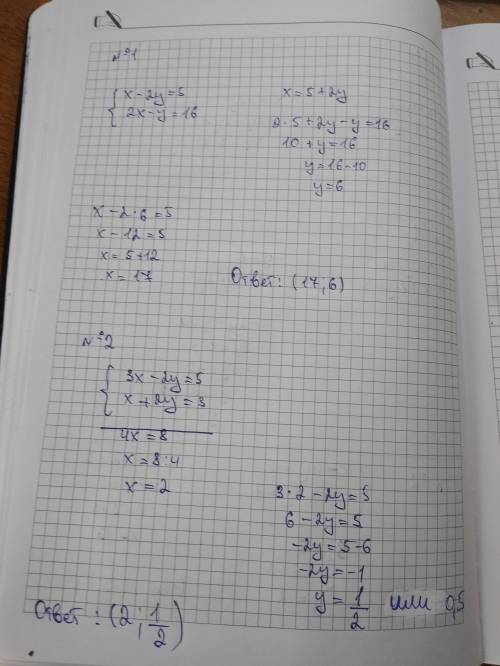 №1
{ x - 2y = 5
2x - y = 16
x = 5 + 2y
2 · 5 + 2y - y = 16
10 + y = 16
y = 16 - 10
y = 6
x - 2 · 6 = 5
x - 12 = 5
x = 5 + 12
x = 17
Ответ: (17, 6)
№2
{ 3x - 2y = 5
x + 2y = 3
4x = 8
x = 8 · 4
x = 2
3 · 2 - 2y = 5
6 - 2y = 5
-2y = 5 - 6
-2y = -1
y = 1/2 или 0,5
Ответ: (2; 1/2)